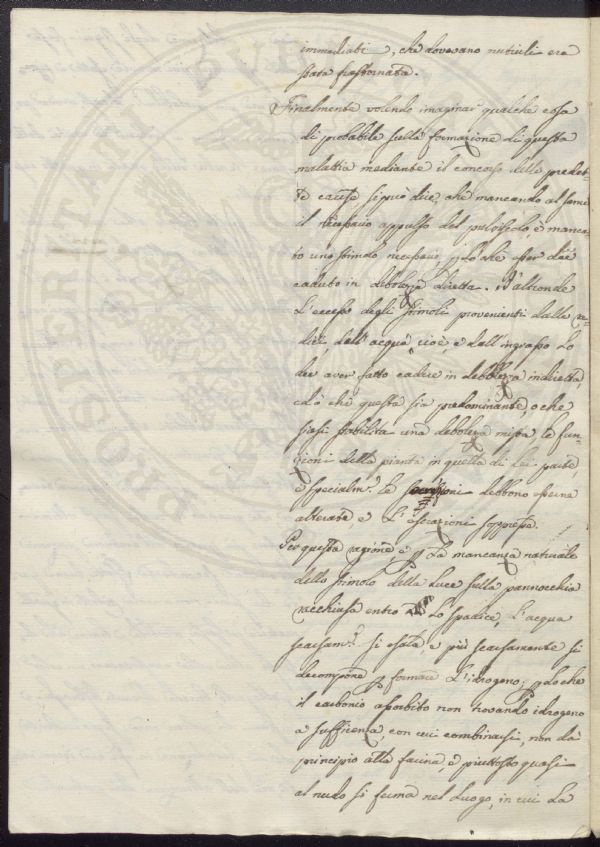 immediati, che dovevano nutrirli era
stata frastornata.
Finalmente volendo imaginar qualche cosa
di probabile sulla formazione di questa
malattia mediante il concorso delle predet-
te cause si può dire, che mancando al seme
il necessario appulso del pulviscolo è manca-
to uno stimolo necessario, p lo che esser dee
caduto in debolezza diretta. D'altronde
L'eccesso degli stimoli provenienti dalle ra-
dici, dell'acqua cioè, e dall'ingrasso Lo
dee aver fatto cadere in debolezza indiretta,
ed o che questa sia predominante, o che
siasi stabilita una debolezza mista le fun-
zioni della pianta in quella di lei parte,
e specialm.e le secrezioni debbono esserne
alterate e L'escrezioni soppresse.
Per questa ragione e p La mancanza naturale
dello stimolo della luce sulla pannocchia
racchiusa entro Lo spadice, L'acqua
scarsam.e si esala, e più scarsamente si
decompone p formare L'idrogeno; p lo che
il carbonio assorbito non trovando idrogeno
a sufficienza con cui combinarsi, non dà
principio alla farina, e piuttosto quasi
al nudo si ferma nel Luogo, in cui La